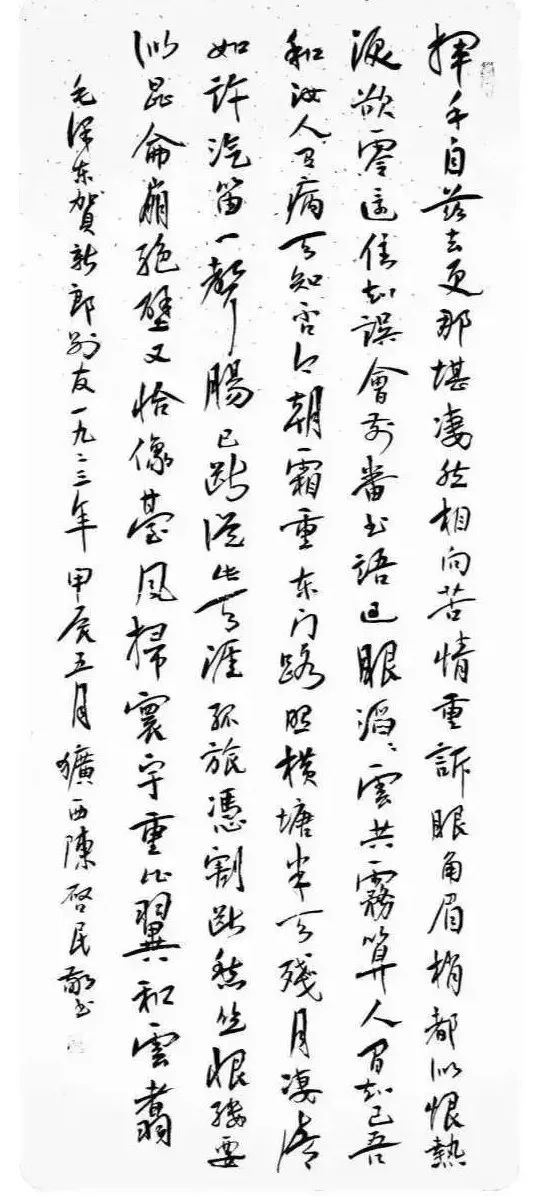 揮手自茲去更那堪凄然相向苦情重訴眼角眉梢都似恨熱
淚欲零還住知誤會前番書語過眼滔〻雲共霧算人間知己吾
和汝人有病天知否今朝霜重東门路照橫塘半天殘月凄清
如許汽笛一聲腸已斷從此天涯孤旅憑割斷愁絲恨縷要
似昆侖崩絶壁又恰像臺风掃寰宇重比翼和雲翥
毛澤东賀新郎别友一九二三年甲辰五月獷西陳啓民敬书